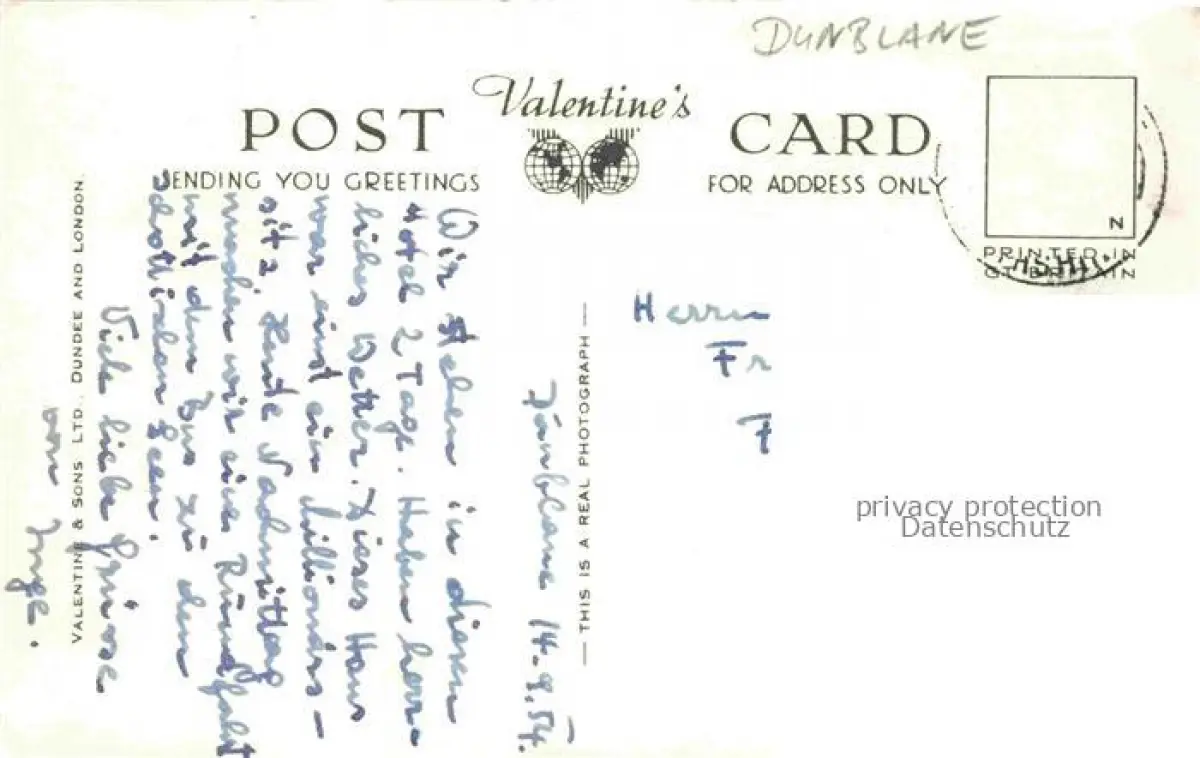 DUNBLANE
Valentine's
POST CARD
SENDING YOU GREETINGS
FOR ADDRESS ONLY
N
PRINTED IN
GT BRITAIN
Dunblane 14.9.54.
Wir stehen in diesem
Hotel 2 Tage. Haben herr-
liches Wetter. Dieses Haus
war einst ein Millionärs-
sitz. Heute Nachmittag
machen wir eine Rundfahrt
mit dem Bus zu den
schottischen Seen.
Viele liebe Grüsse
von Inge.
VALENTINE & SONS LTD., DUNDEE AND LONDON.
— THIS IS A REAL PHOTOGRAPH —
Herrn
Fr
F
privacy protection
Datenschutz